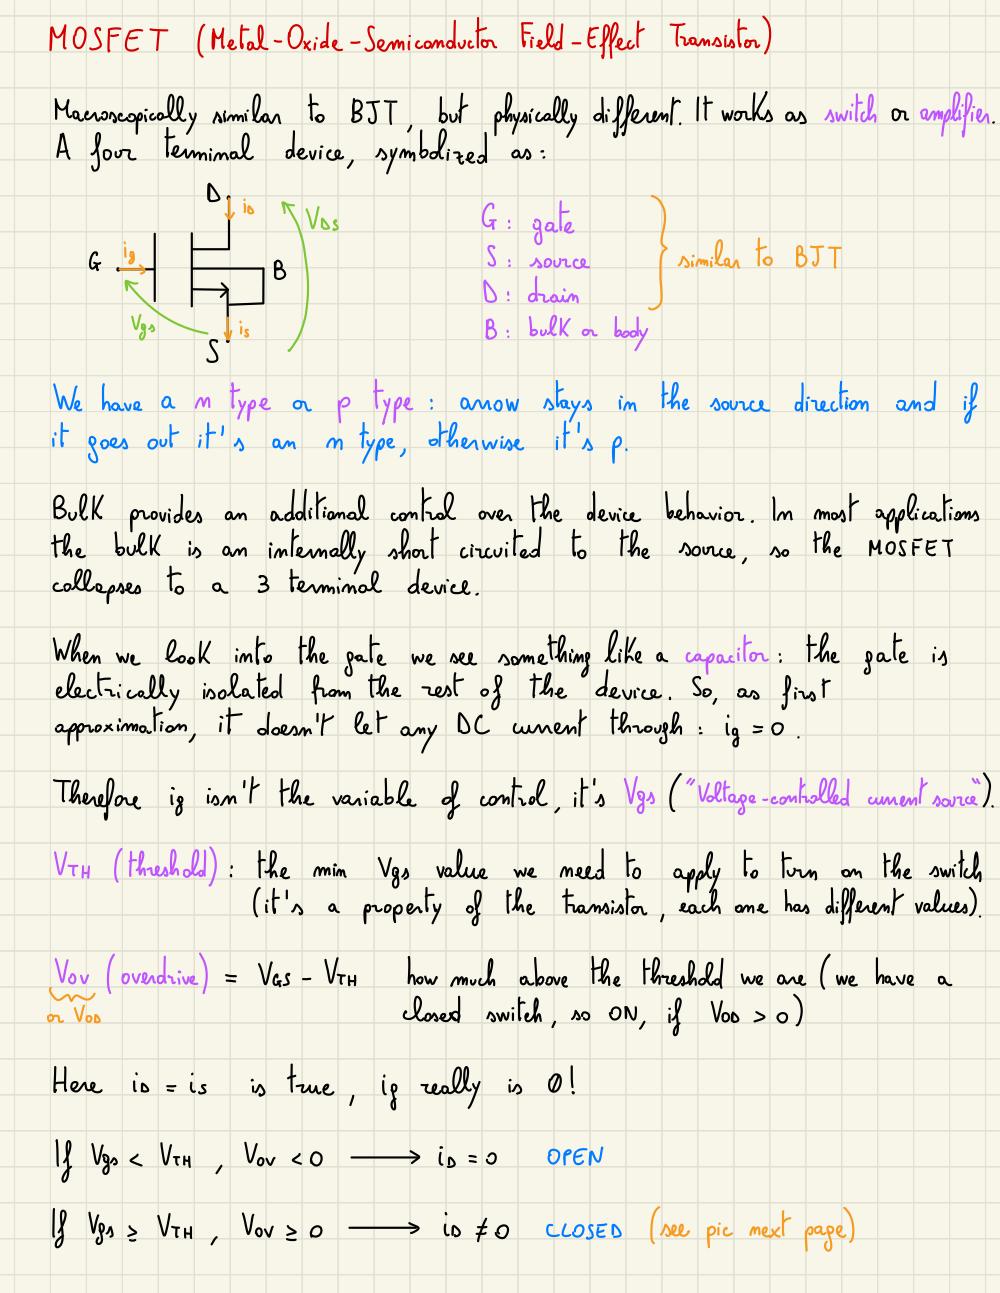 MOSFET (Metal-Oxide-Semiconductor Field-Effect Transistor)
Macroscopically similar to BJT, but physically different. It works as switch or amplifier.
A four terminal device, symbolized as:
D
iD
VDS
G
ig
B
Vgs
is
S
G: gate
S: source
D: drain
B: bulk or body
similar to BJT
We have a n type or p type: arrow stays in the source direction and if
it goes out it's an n type, otherwise it's p.
Bulk provides an additional control over the device behavior. In most applications
the bulk is an internally short circuited to the source, so the MOSFET
collapses to a 3 terminal device.
When we look into the gate we see something like a capacitor: the gate is
electrically isolated from the rest of the device. So, as first
approximation, it doesn't let any DC current through: ig = 0.
Therefore ig isn't the variable of control, it's Vgs ("Voltage-controlled current source").
VTH (threshold): the min Vgs value we need to apply to turn on the switch
(it's a property of the transistor, each one has different values).
Vov (overdrive) = VGS - VTH how much above the threshold we are (we have a
or VOD closed switch, so ON, if VOD > 0)
Here iD = is is true, ig really is 0!
If Vgs < VTH, Vov < 0 ⟶ iD = 0 OPEN
If Vgs ≥ VTH, Vov ≥ 0 ⟶ iD ≠ 0 CLOSED (see pic next page)